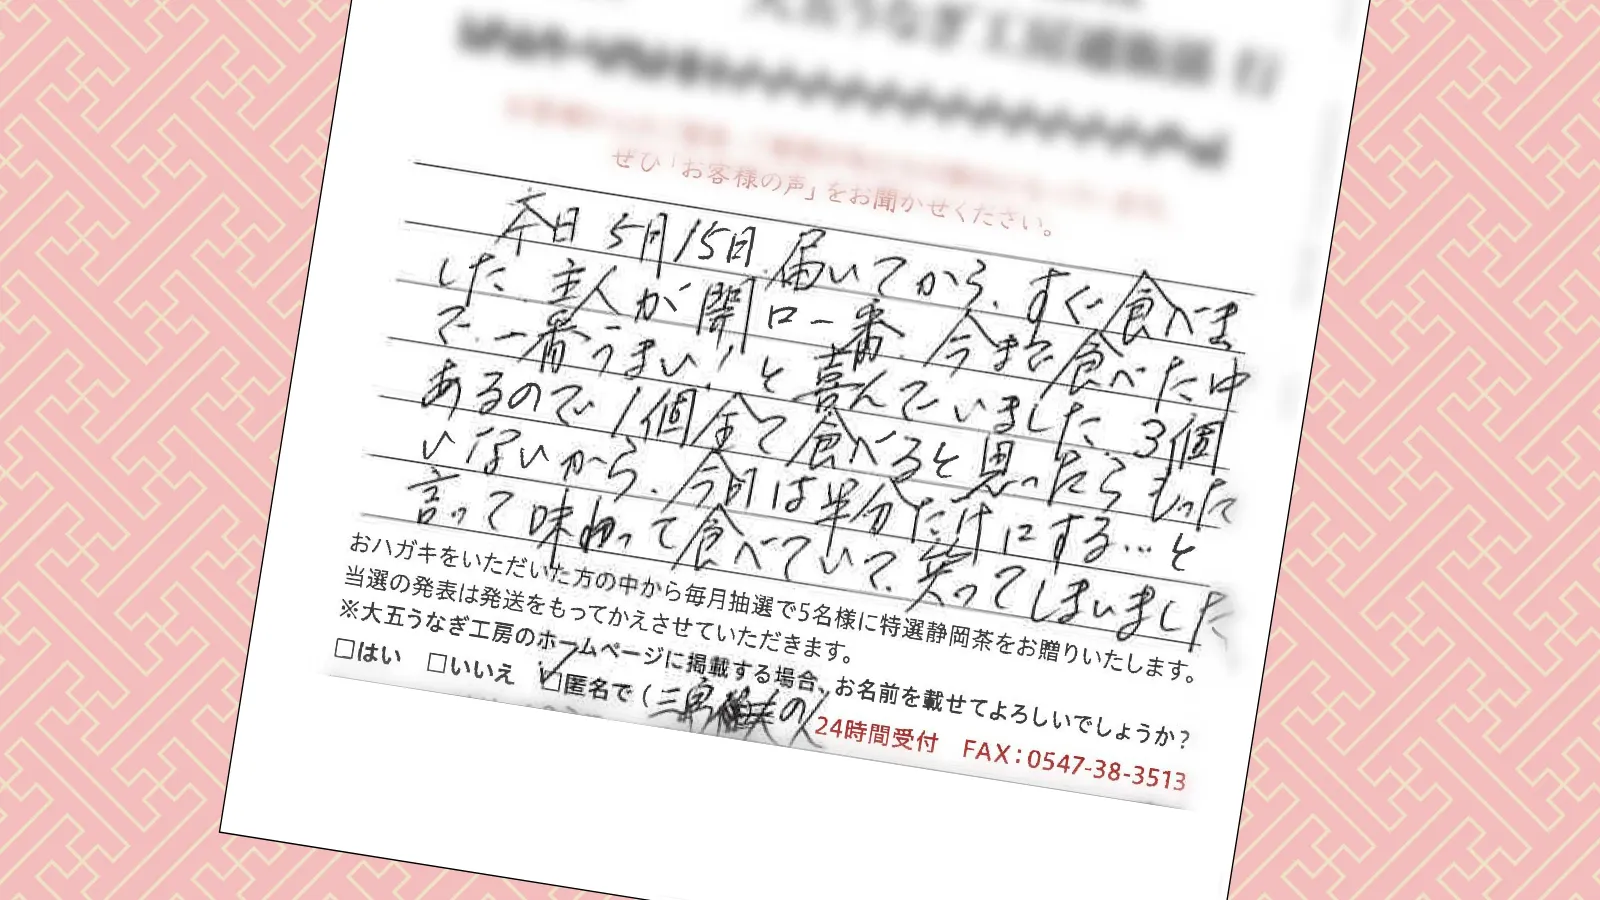 大五うなぎ工房通販部 行
ぜひ「お客様の声」をお聞かせください。
本日 5月15日 届いてから、すぐ食べま
した 主人が開口一番、今まで食べた中
で、一番うまい!と喜んでいました 3個
あるので1個全て食べると思ったらもった
いないから、今日は半分だけにする…と
言って味わって食べていて、笑ってしまいました
おハガキをいただいた方の中から毎月抽選で5名様に特選静岡茶をお贈りいたします。
当選の発表は発送をもってかえさせていただきます。
※大五うなぎ工房のホームページに掲載する場合、お名前を載せてよろしいでしょうか?
□はい □いいえ □匿名で(
24時間受付 FAX:0547-38-3513